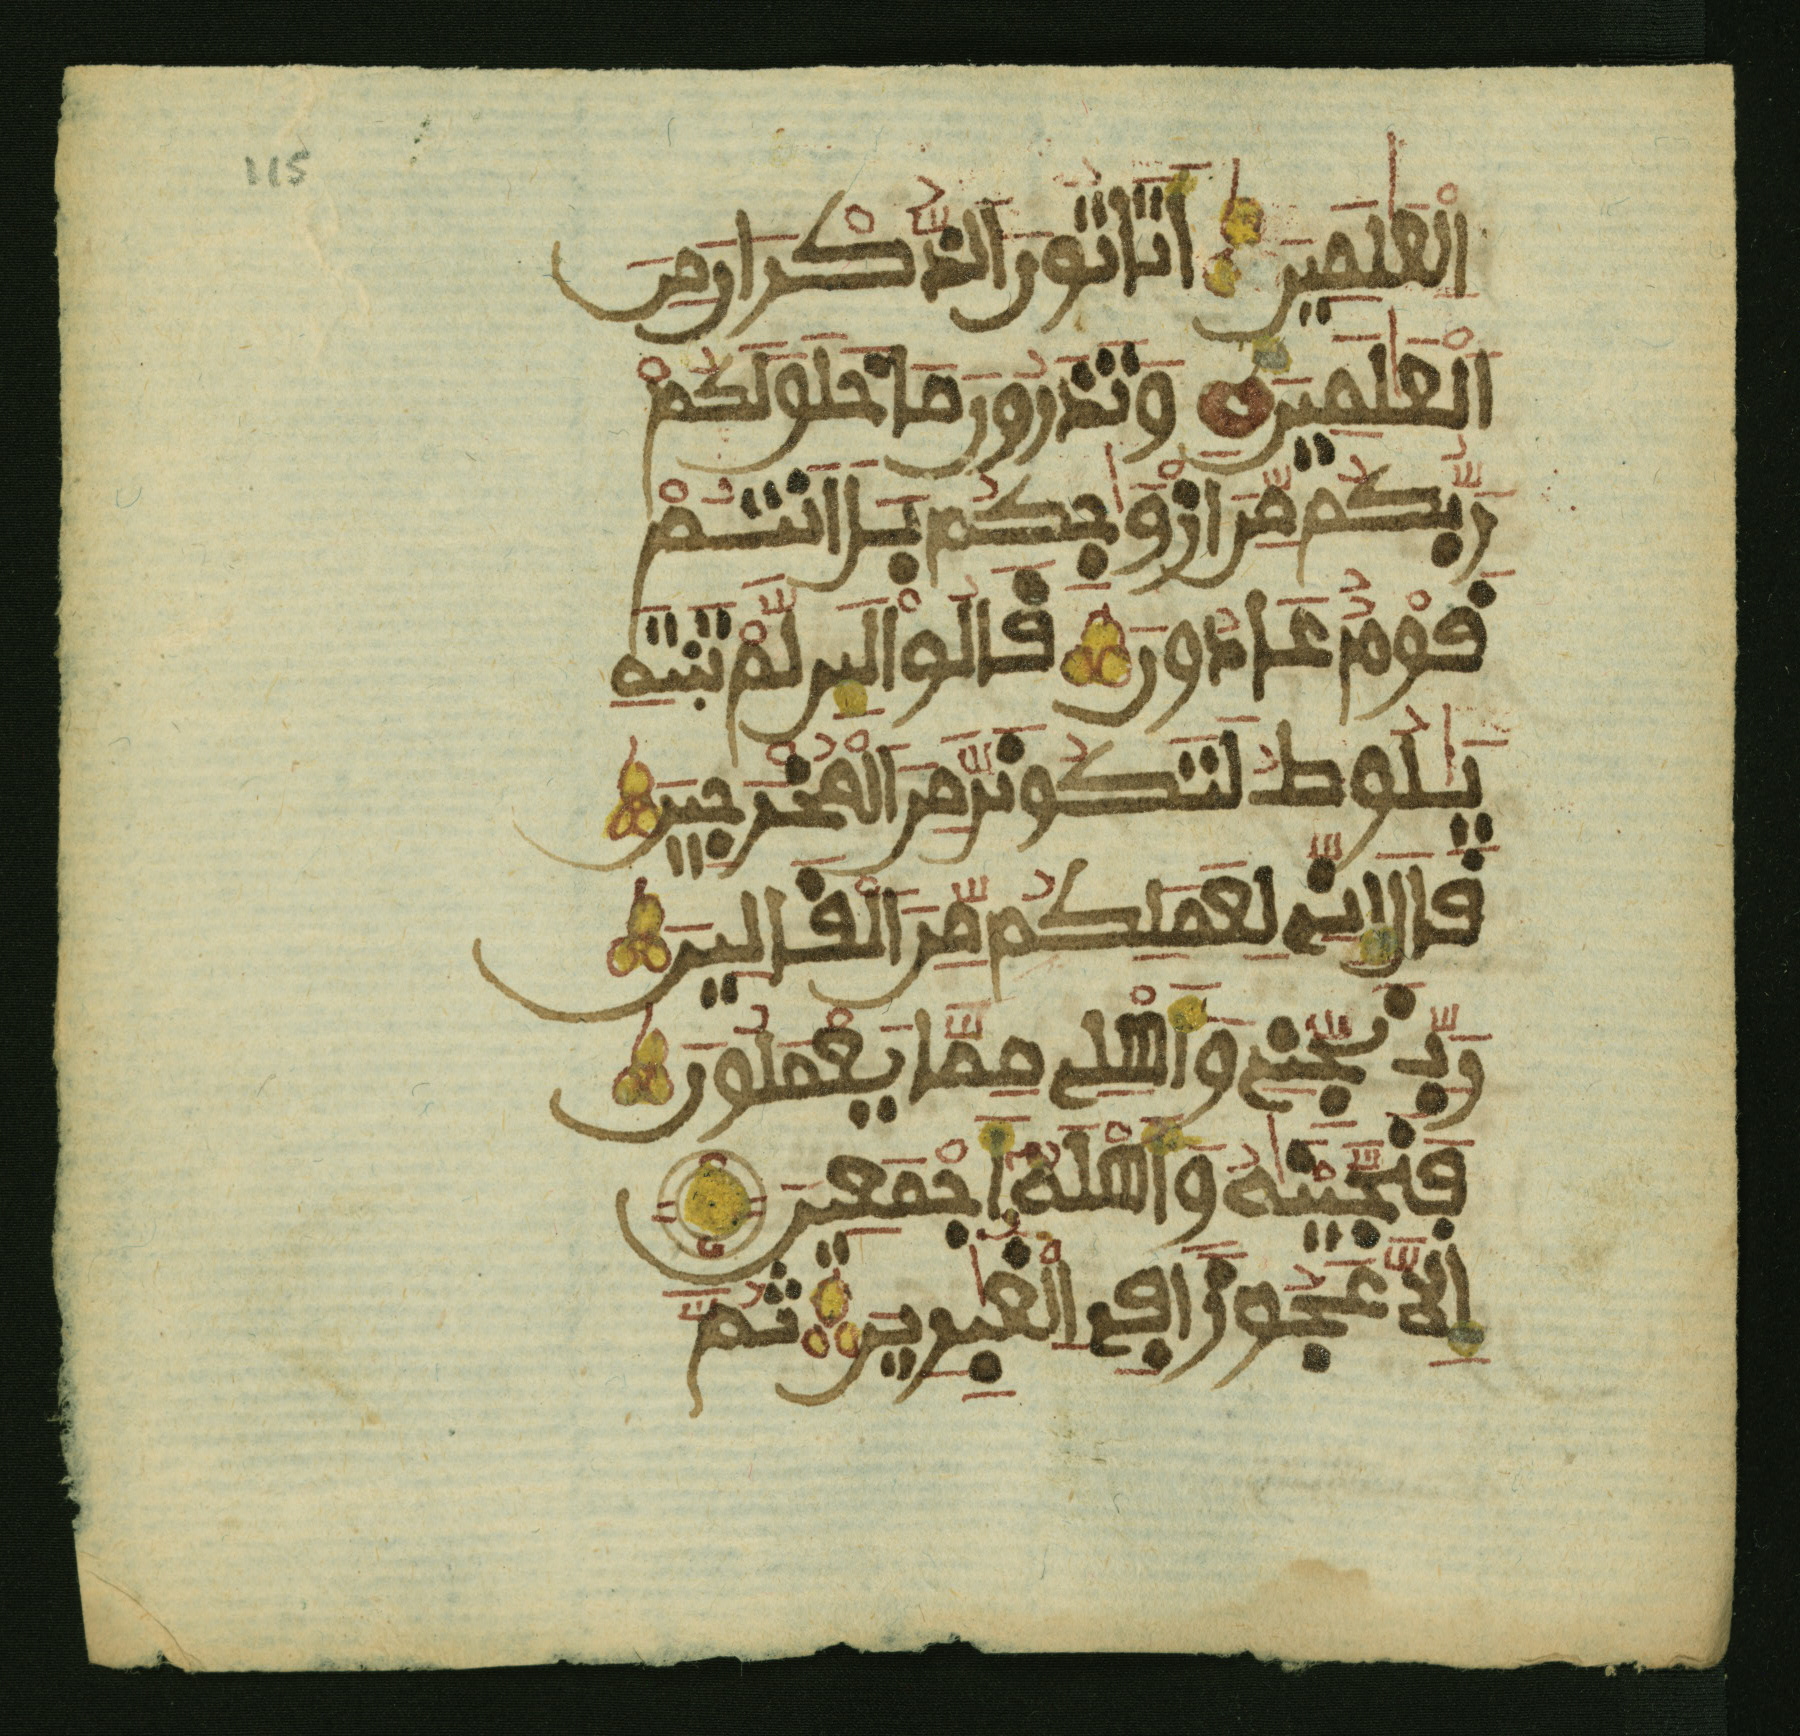 115
الْعَٰلَمِينَ أَتَاتُونَ الذُّكْرَانَ مِنَ
الْعَٰلَمِينَ وَتَذَرُونَ مَا خَلَقَ لَكُمْ
رَبُّكُم مِّنَ ازْوَٰجِكُم بَلَ انتُمْ
قَوْمٌ عَادُونَ قَالُواْ لَئِن لَّمْ تَنتَهِ
يَٰلُوطُ لَتَكُونَنَّ مِنَ الْمُخْرَجِينَ
قَالَ إِنِّي لِعَمَلِكُم مِّنَ الْقَالِينَ
رَبِّ نَجِّنِي وَأَهْلِي مِمَّا يَعْمَلُونَ
فَنَجَّيْنَٰهُ وَأَهْلَهُ أَجْمَعِينَ
إِلَّا عَجُوزاً فِي الْغَٰبِرِينَ ثُمَّ